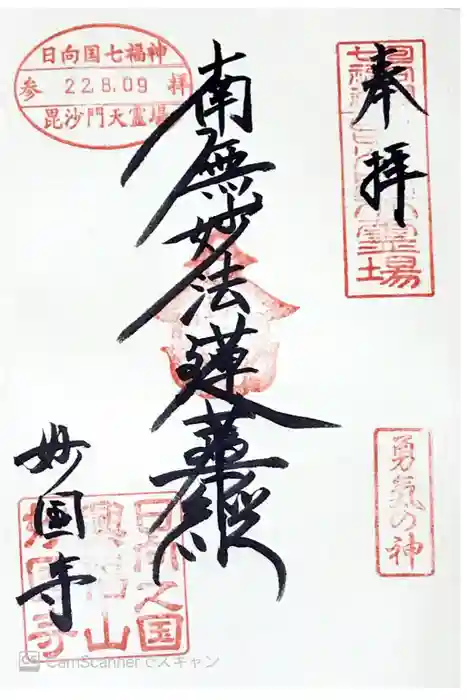 奉拝
日向国七福神
参 22.8.09 拝
毘沙門天霊場
南無妙法蓮華経
勇気の神
妙国寺
日向之国
興福山
妙国寺
CamScannerでスキャン